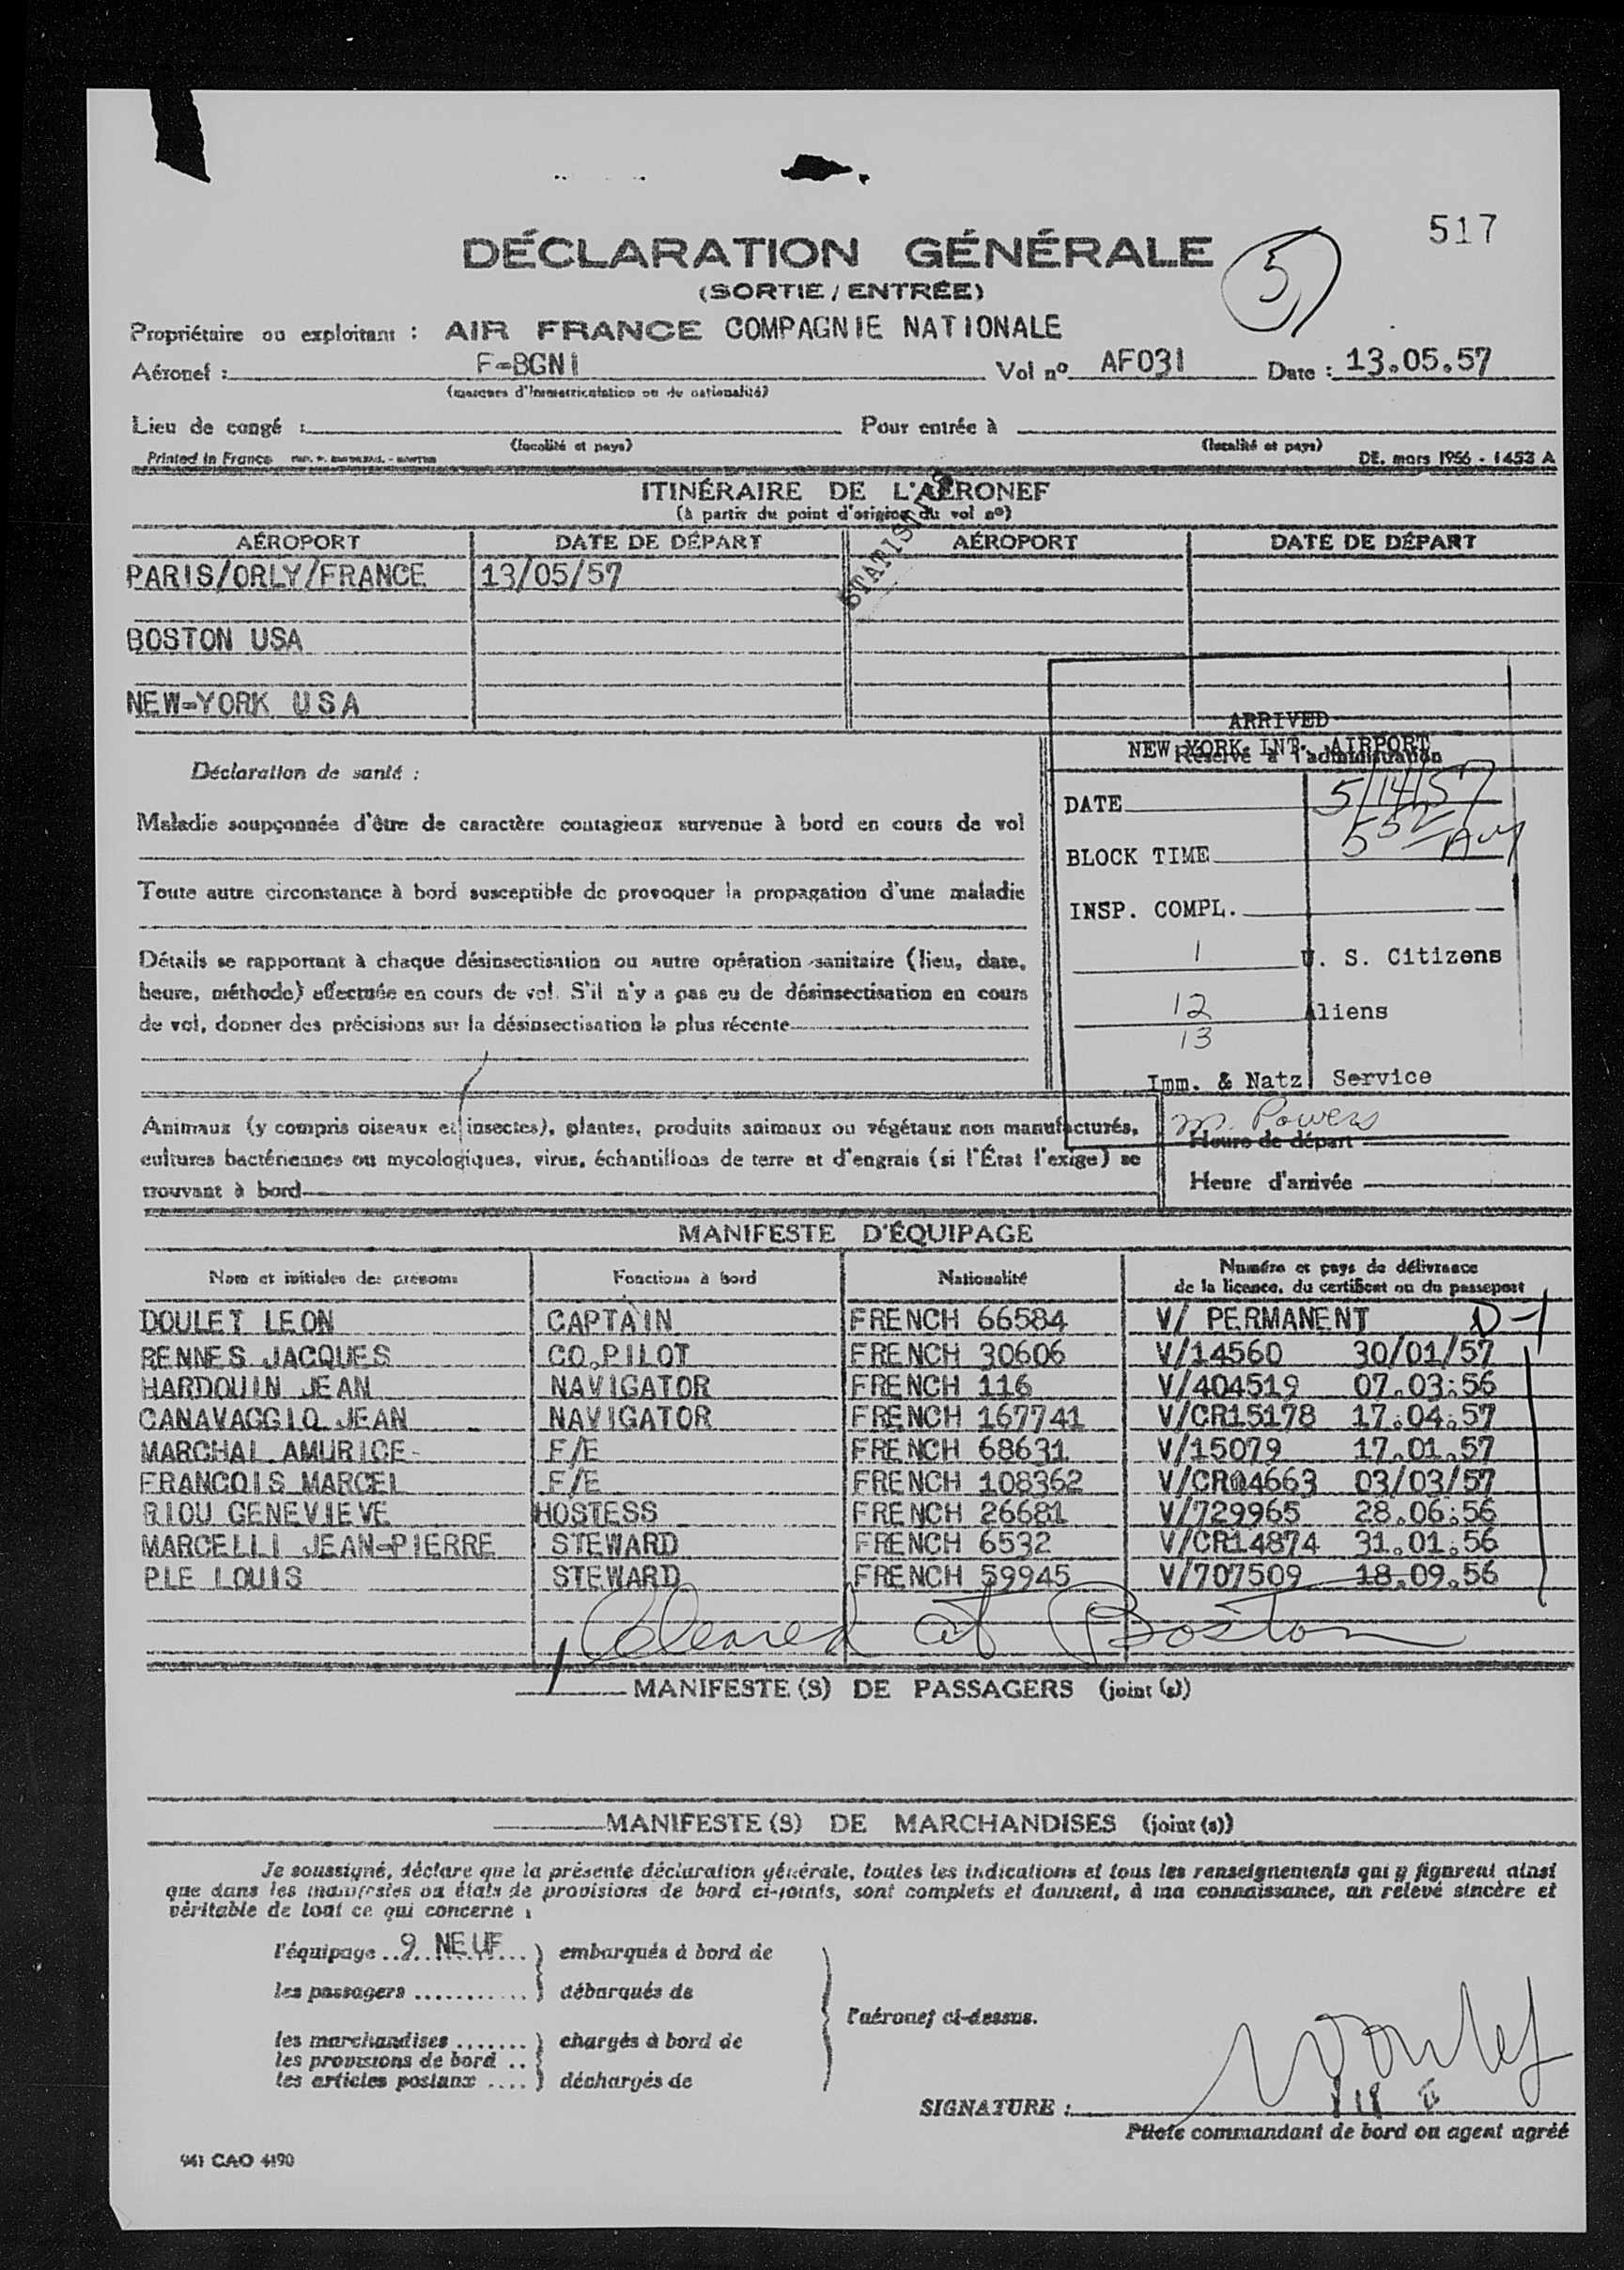 517
DÉCLARATION GÉNÉRALE
5
(SORTIE / ENTRÉE)
Propriétaire ou exploitant : AIR FRANCE COMPAGNIE NATIONALE
Aéronef : F-BGNI Vol nº AF031 Date : 13.05.57
(marques d'immatriculation ou de nationalité)
Lieu de congé : Pour entrée à
(localité et pays) (localité et pays)
Printed in France DE. mars 1956 - 1453 A
ITINÉRAIRE DE L'AÉRONEF
(à partir du point d'origine du vol nº)
AÉROPORT DATE DE DÉPART AÉROPORT DATE DE DÉPART
PARIS/ORLY/FRANCE 13/05/57
BOSTON USA
NEW-YORK USA
ARRIVED
NEW YORK INT. AIRPORT
Réservé à l'administration
DATE 5/14/57
BLOCK TIME 552 AM
INSP. COMPL.
1 U. S. Citizens
12 Aliens
13
Imm. & Natz Service
M. Powers
Déclaration de santé :
Maladie soupçonnée d'être de caractère contagieux survenue à bord en cours de vol
Toute autre circonstance à bord susceptible de provoquer la propagation d'une maladie
Détails se rapportant à chaque désinsectisation ou autre opération sanitaire (lieu, date,
heure, méthode) effectuée en cours de vol. S'il n'y a pas eu de désinsectisation en cours
de vol, donner des précisions sur la désinsectisation la plus récente
Animaux (y compris oiseaux et insectes), plantes, produits animaux ou végétaux non manufacturés,
cultures bactériennes ou mycologiques, virus, échantillons de terre et d'engrais (si l'État l'exige) se
trouvant à bord
Heure de départ
Heure d'arrivée
MANIFESTE D'ÉQUIPAGE
Nom et initiales des prénoms Fonctions à bord Nationalité Numéro et pays de délivrance
de la licence, du certificat ou du passeport
DOULET LEON CAPTAIN FRENCH 66584 V/ PERMANENT D-1
RENNES JACQUES CO.PILOT FRENCH 30606 V/14560 30/01/57
HARDOUIN JEAN NAVIGATOR FRENCH 116 V/404519 07.03.56
CANAVAGGIO JEAN NAVIGATOR FRENCH 167741 V/CR15178 17.04.57
MARCHAL AMURICE F/E FRENCH 68631 V/15079 17.01.57
FRANCOIS MARCEL F/E FRENCH 108362 V/CR04663 03/03/57
RIOU GENEVIEVE HOSTESS FRENCH 26681 V/729965 28.06.56
MARCELLI JEAN-PIERRE STEWARD FRENCH 6532 V/CR14874 31.01.56
PLE LOUIS STEWARD FRENCH 59945 V/707509 18.09.56
Cleared at Boston
1 MANIFESTE(S) DE PASSAGERS (joint (s))
MANIFESTE(S) DE MARCHANDISES (joint (s))
Je soussigné, déclare que la présente déclaration générale, toutes les indications et tous les renseignements qui y figurent ainsi
que dans les manifestes ou états de provisions de bord ci-joints, sont complets et donnent, à ma connaissance, un relevé sincère et
véritable de tout ce qui concerne :
l'équipage 9 NEUF embarqués à bord de
les passagers débarqués de
l'aéronef ci-dessus.
les marchandises chargés à bord de
les provisions de bord
les articles postaux déchargés de
SIGNATURE :
Pilote commandant de bord ou agent agréé
941 CAO 4190